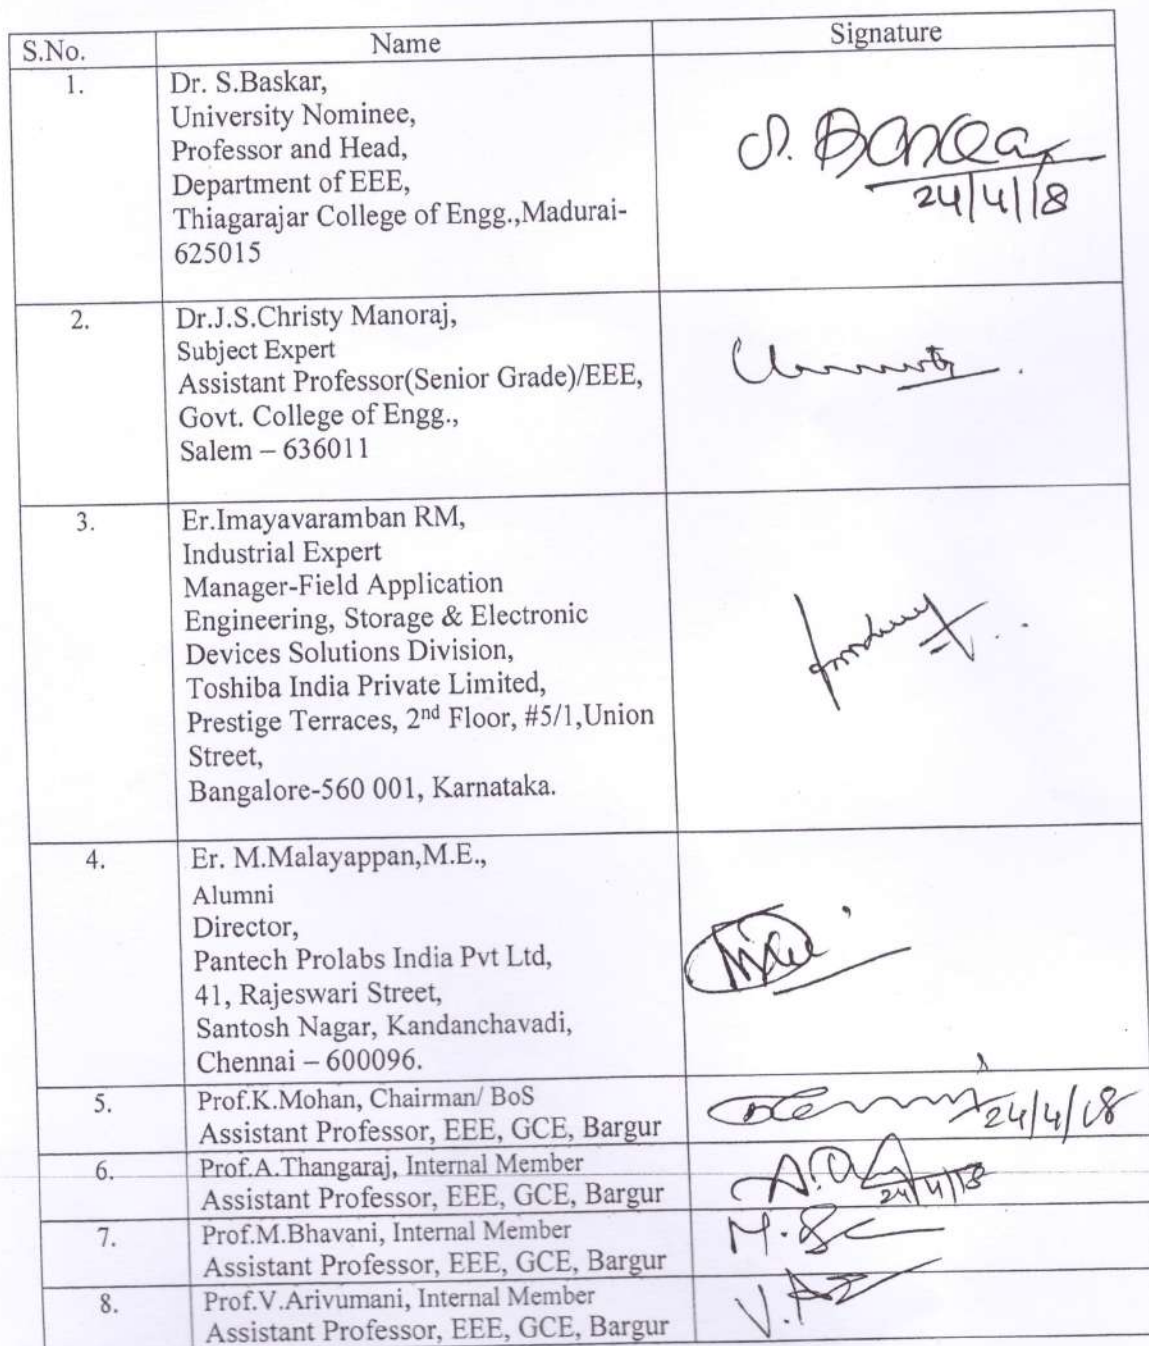 S.No. Name Signature
1. Dr. S.Baskar,
University Nominee,
Professor and Head,
Department of EEE,
Thiagarajar College of Engg.,Madurai-
625015
S. Baskar
24/4/18
2. Dr.J.S.Christy Manoraj,
Subject Expert
Assistant Professor(Senior Grade)/EEE,
Govt. College of Engg.,
Salem – 636011
3. Er.Imayavaramban RM,
Industrial Expert
Manager-Field Application
Engineering, Storage & Electronic
Devices Solutions Division,
Toshiba India Private Limited,
Prestige Terraces, 2nd Floor, #5/1,Union
Street,
Bangalore-560 001, Karnataka.
4. Er. M.Malayappan,M.E.,
Alumni
Director,
Pantech Prolabs India Pvt Ltd,
41, Rajeswari Street,
Santosh Nagar, Kandanchavadi,
Chennai – 600096.
5. Prof.K.Mohan, Chairman/ BoS
Assistant Professor, EEE, GCE, Bargur 24/4/18
6. Prof.A.Thangaraj, Internal Member
Assistant Professor, EEE, GCE, Bargur 24/4/18
7. Prof.M.Bhavani, Internal Member
Assistant Professor, EEE, GCE, Bargur
8. Prof.V.Arivumani, Internal Member
Assistant Professor, EEE, GCE, Bargur